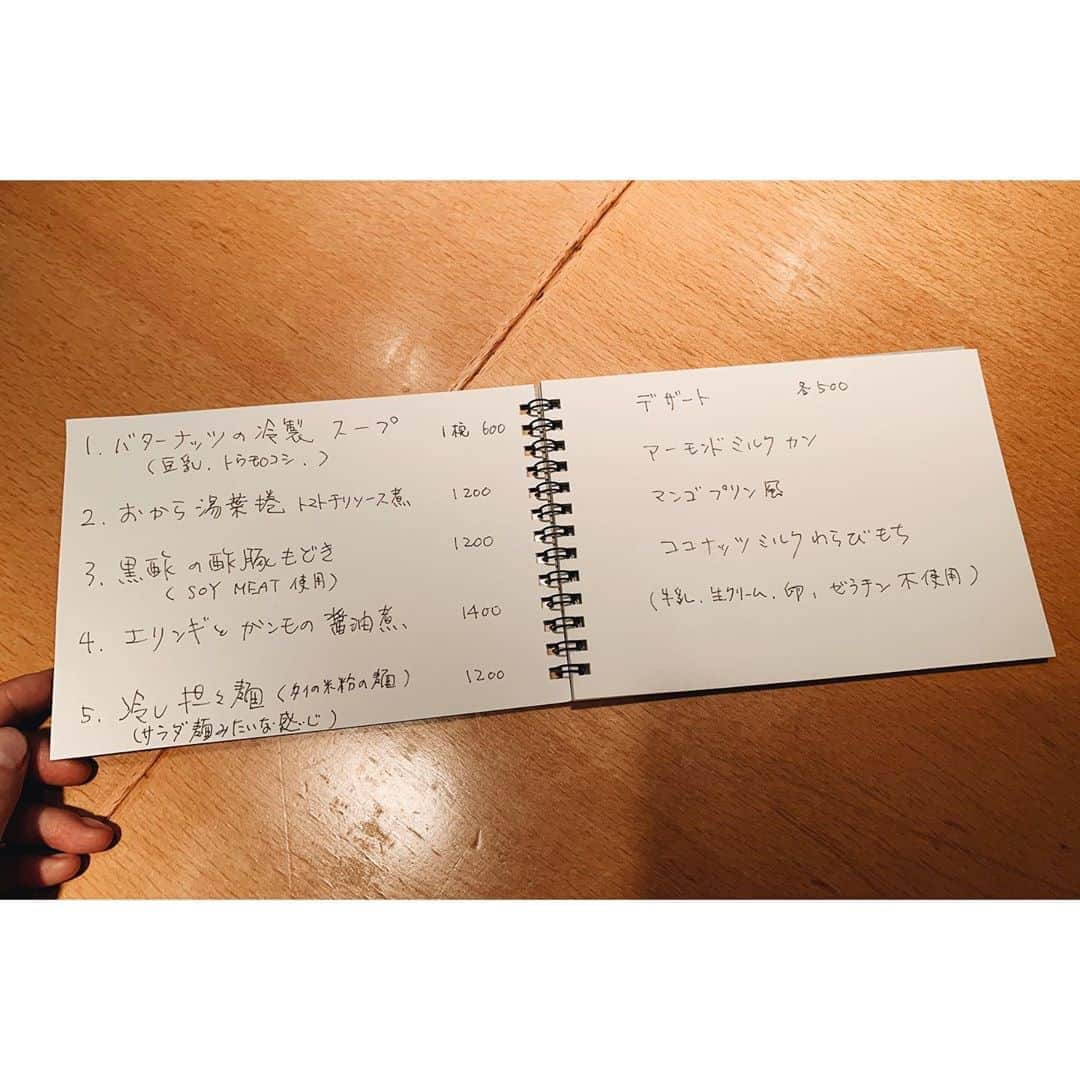 1. バターナッツの冷製 スープ 1椀 600
(豆乳、トウモロコシ、)
2. おから湯葉捲 トマトチリソース煮 1200
3. 黒酢の酢豚もどき 1200
(SOY MEAT 使用)
4. エリンギと ガンモの 醤油煮 1400
5. 冷し 担々麺 (タイの米粉の麺) 1200
(サラダ麺みたいな感じ)
デザート 各500
アーモンドミルク カン
マンゴプリン風
ココナッツミルクわらびもち
(牛乳、生クリーム、卵、ゼラチン 不使用)